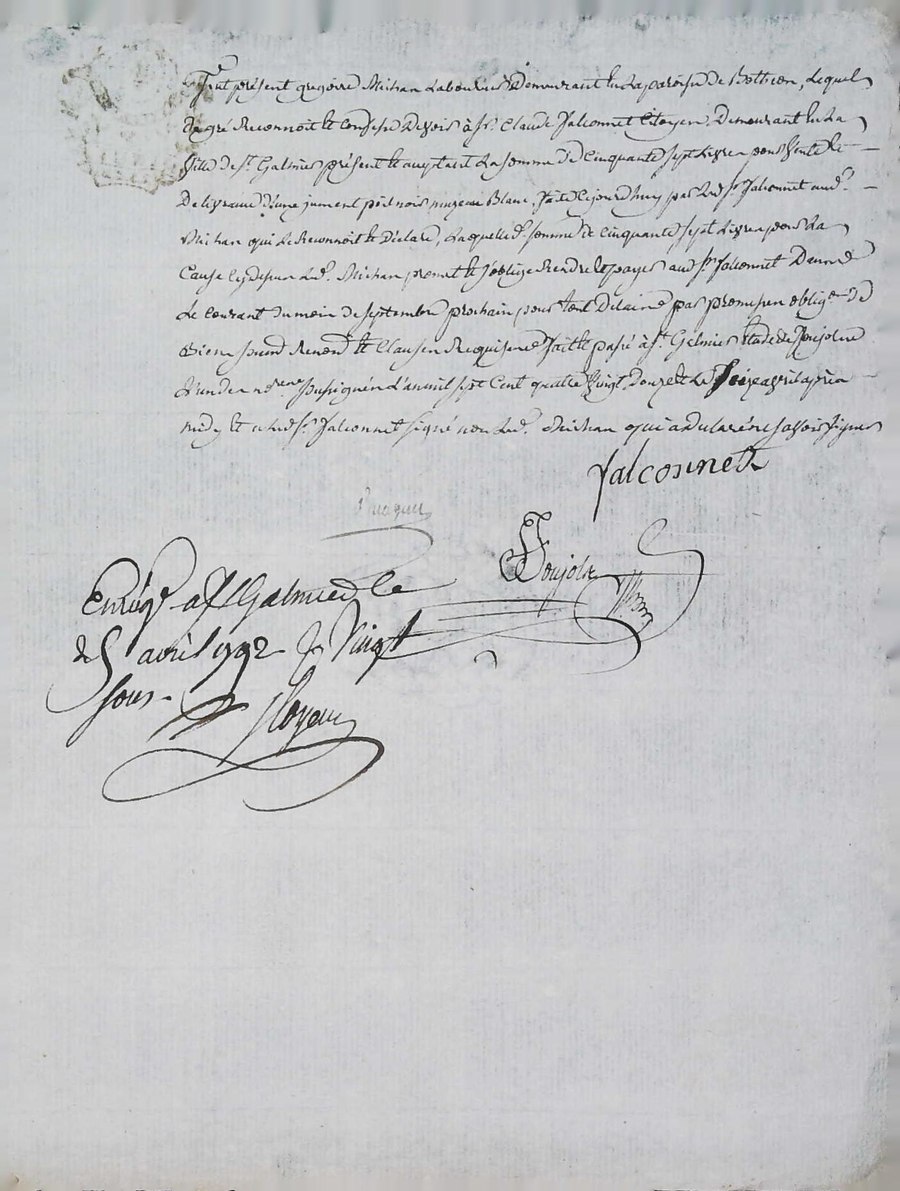 Fut présent gregoire Michan Laboureur Demeurant en La paroisse de Bothéon, Lequel
De gré Reconnoit et Confesse Devoir à Sr. Claude falconnet Citoyen Demeurant en La
Ville de St. Galmier présent et acceptant La somme de Cinquante sept Livres pour Vente et
Delivrance d'une jument poil noir muzeau Blanc, faite Cejourd'huy par Led. Sr. falconnet aud.
Michan qui Le Reconnoit et Déclare, Laquelle d. somme de Cinquante sept Livres pour La
Cause Cy dessus Led. Michan promet et s'oblige Rendre et payer aud. Sr. falconnet Dans
Le Courant du mois de septembre prochain pour tout Délai par promesse oblig.on de
Biens Renon.d et Clauses Requises fait et passé à St. Galmier étude de Poujolat
L'un des n.res soussignés L'an mil sept Cent quatre Vingt Douze et Le avril après
midy et a Led. Sr. falconnet signé non Led. Michan qui a déclaré ne savoir signer
falconnet
Enrég. a St Galmier le
5 avril 1792 Vingt
sous